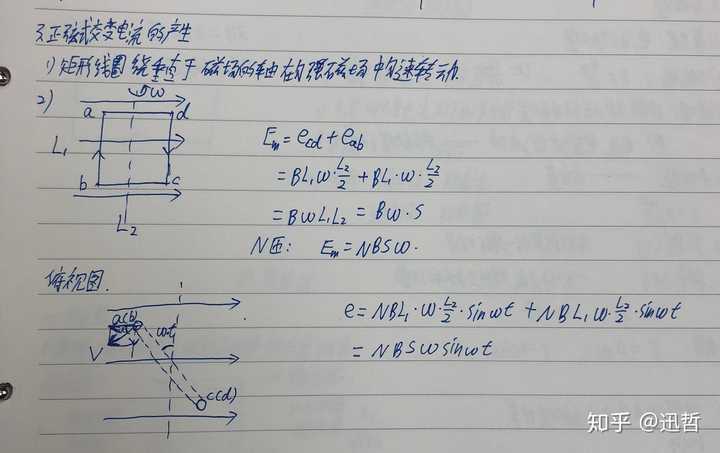 3.正弦式交变电流的产生
1)矩形线圈绕垂直于磁场的轴在匀强磁场中匀速转动.
2)
ω
a d
L₁
b c
L₂
Eₘ=e_cd+e_ab
=BL₁ω·L₂/2+BL₁·ω·L₂/2
=BωL₁L₂=Bω·S
N匝: Eₘ=NBSω.
俯视图.
a(b)
ωt
V
c(d)
e=NBL₁·ω·L₂/2·sinωt+NBL₁ω·L₂/2·sinωt
=NBSωsinωt
知乎 @迅哲